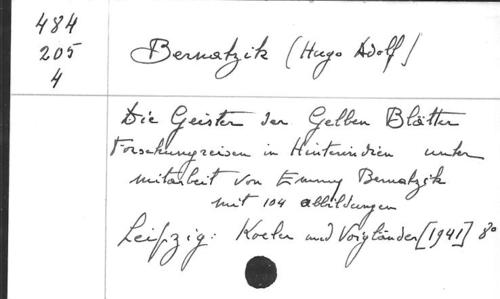 484
205
4
Bernatzik (Hugo Adolf)
Die Geister der Gelben Blätter
Forschungreisen in Hinterindien unter
mitarbeit von Emmy Bernatzik
mit 104 abbildungen
Leipzig: Koeler und Voigtländer [1941] 8º